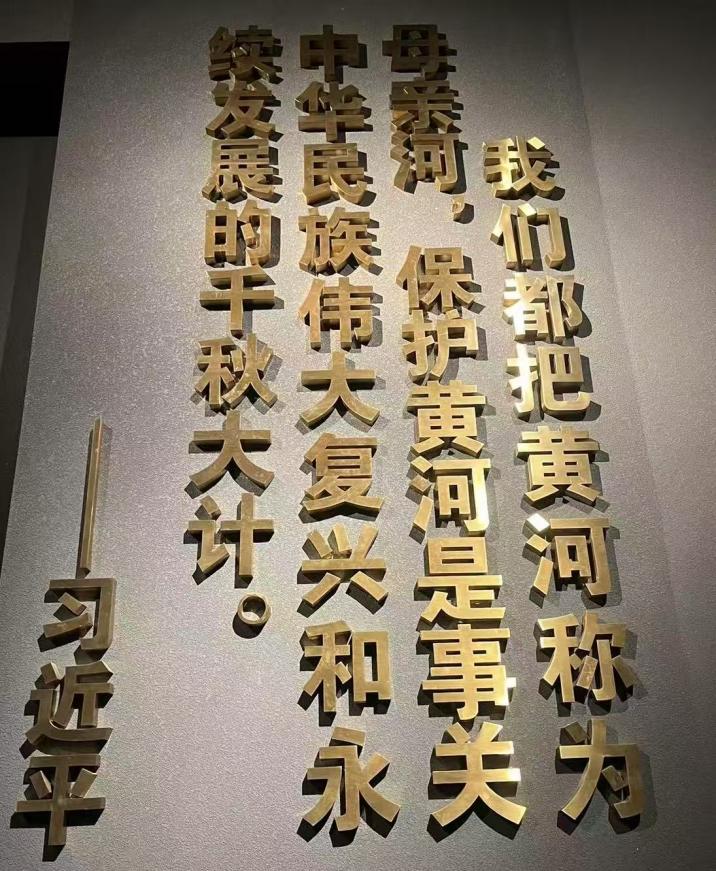 我们都把黄河称为
母亲河，保护黄河是事关
中华民族伟大复兴和永
续发展的千秋大计。
——习近平